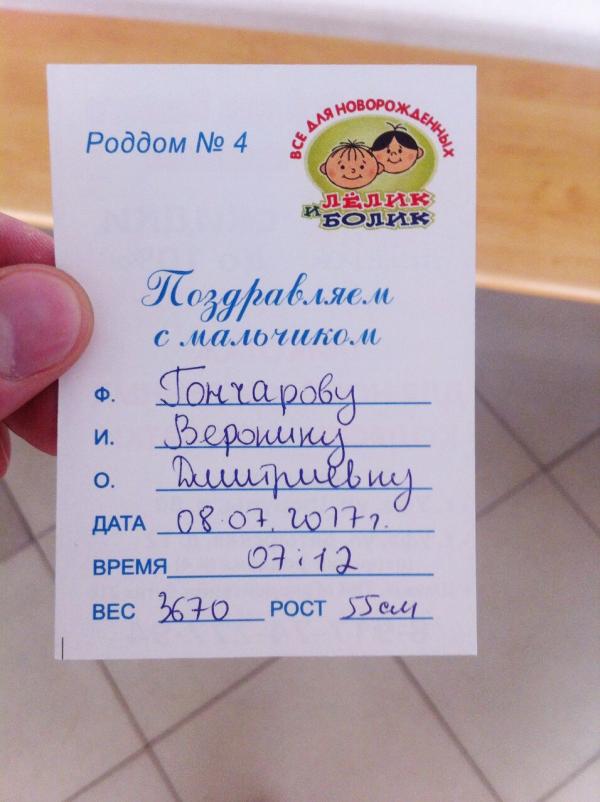 Роддом № 4
ВСЕ ДЛЯ НОВОРОЖДЕННЫХ
ЛЁЛИК
и БОЛИК
Поздравляем
с мальчиком
Ф. Гончарову
И. Веронику
О. Дмитриевну
ДАТА 08.07.2017г.
ВРЕМЯ 07:12
ВЕС 3670 РОСТ 55см